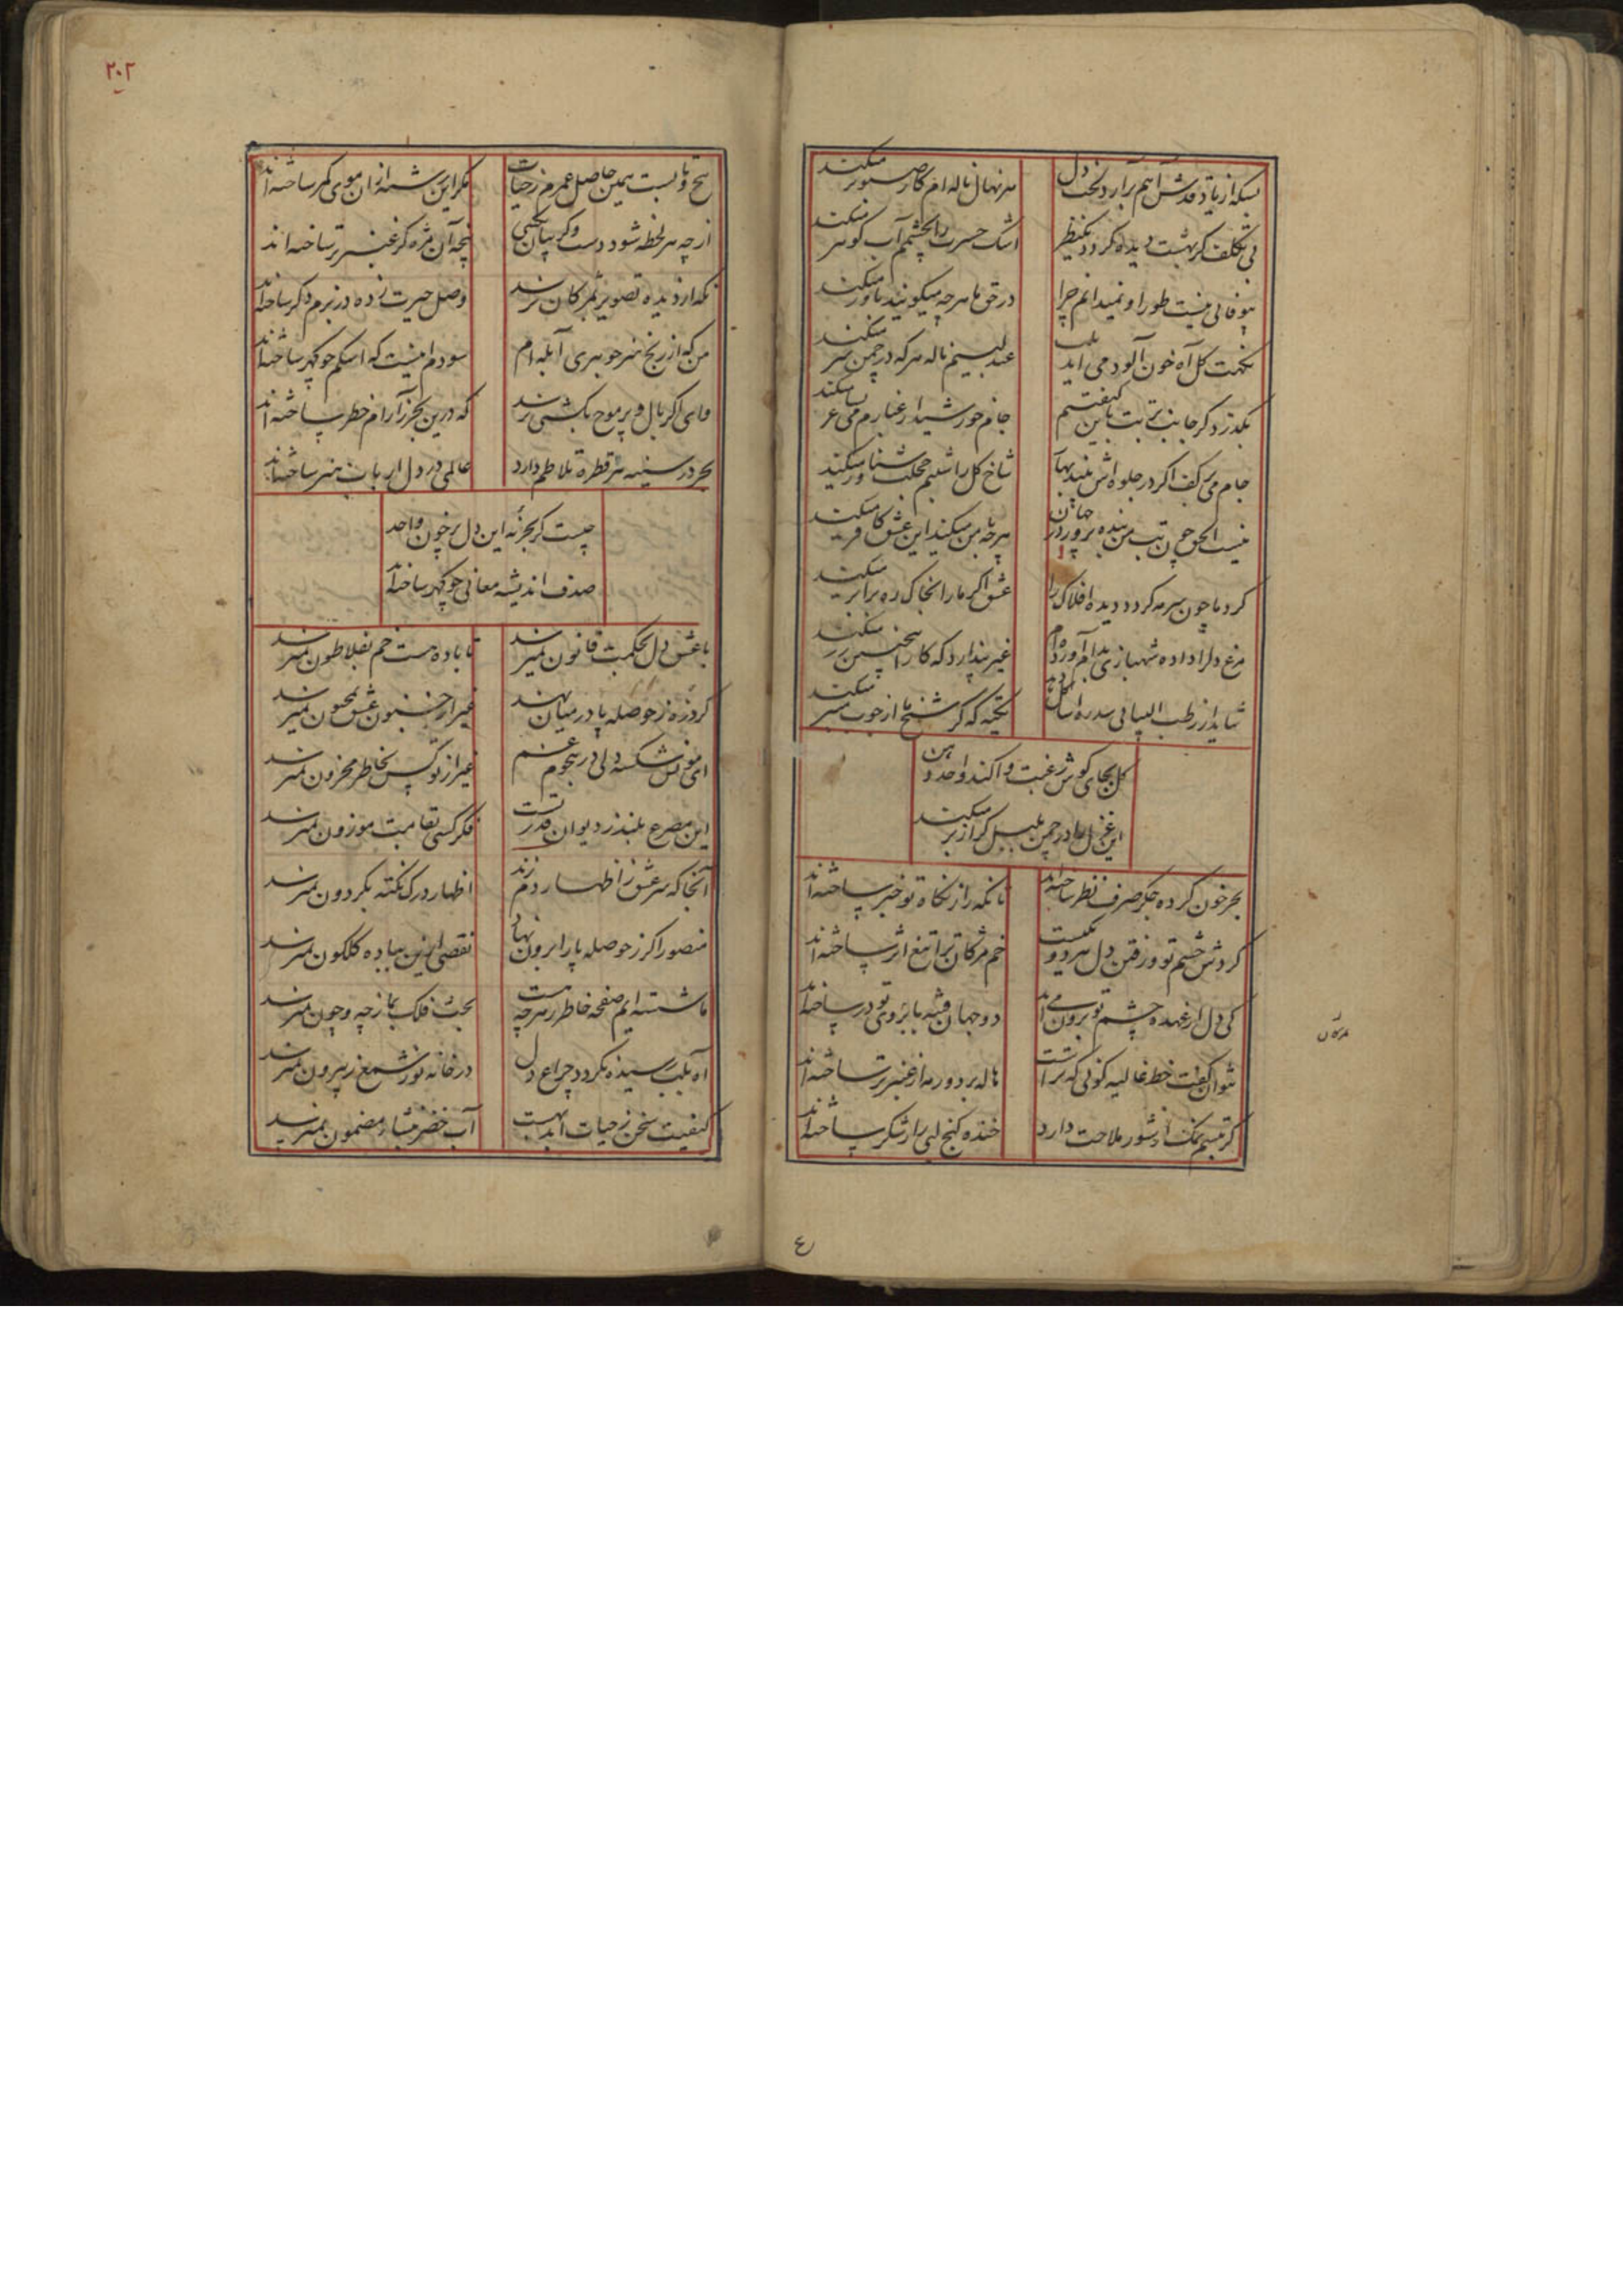 بسکه از یاد قدش آهم برآرد لخت دل
هر نهال ناله ام کار صنوبر میکند
بی تکلف گر بهشت دیده گردد
اشک حسرت را بچشمم آب کوثر میکند
بیوفائی نیست طور او نمیدانم چرا
در حق ما هر چه میگویند باور میکند
نکهت گل آه خون آلود می آید بلب
عندلیبم ناله هر که در چمن سر میکند
بگذرد گر جانب تربت باین کیفیتم
جام خورشید از غبارم می
جام می بر کف اگر در جلوه اش بیند بهار
شاخ گل را شبنم خجلت شناور میکند
نیست الحق چون بت من بنده پرور در جهان
هر چه با من میکند این عشق کافر میکند
گرد ما چون سرمه گردد دیده افلاک را
عشق اگر ما را بخاک ره برابر میکند
مرغ دل را داده شهبازی بدام آورده ام
غیر پندارد که کار اینچنین زر میکند
شاید از رطب اللسانی سدره
تکیه که گر شیخ ما از چوب منبر میکند
گل بجای گوش رغبت وا کند واحد دهن
این غزل را در چمن بلبل گر از بر میکند
بحر خون کرده جگر صرف نظر ساخته اند
تا نگه را ز نگاه تو خبر ساخته اند
گردش چشم تو و رفتن دل هر دو یکیست
خم مژگان ترا تیغ اثر ساخته اند
کی دل از عهده چشم تو برون می آید
دو جهان فتنه بابروی تو در ساخته اند
نتوان گفت خط غالیه گونی که تراست
هاله بر دور مه از عنبر تر ساخته اند
گر تبسم نمک از شور ملاحت دارد
خنده کنج لبی را ز شکر ساخته اند
٤
٢٠٢
پیچ و تابست همین حاصل عمرم ز حیات
مگر این رشته از آن موی کمر ساخته اند
از چه هر لحظه شود دست و گریبان
پنجه آن مژه گر عنبر تر ساخته اند
نگه از دیده تصویر بمژگان نرسد
وصل حیرت زده در بزم دگر ساخته اند
من که از رنج هنر جوهری آبله ام
سودم اینست که اشکم چو گهر ساخته اند
وای اگر بال و پر موج بکشتی نرسد
که درین بحر ز آرام خطر ساخته اند
بحر در سینه هر قطره تلاطم دارد
عالمی در دل ارباب هنر ساخته اند
چیست گر بحر نه این دل پر خون واحد
صدف اندیشه معانی چو گهر ساخته اند
با عشق دل بحکمت قانون نمیرسد
تا باده هست خم بفلاطون نمیرسد
گر ذره ز حوصله پا در میان نهد
غیر از جنون عشق بمجنون نمیرسد
ای مونس شکسته دلی در هجوم غم
غیر از تو کس بخاطر محزون نمیرسد
این مصرع بلند ز دیوان قدرتست
فکر کسی بقامت موزون نمیرسد
آنجا که سر عشق ز اظهار دم زند
اظهار درک نکته بگردون نمیرسد
منصور اگر ز حوصله پا را برون نهاد
نقصی ازین بباده گلگون نمیرسد
ما شسته ایم صفحه خاطر ز هر چه هست
بحث فلک بما ز چه و چون نمیرسد
آه بلب رسیده نگردد چراغ دل
در خانه نور شمع ز بیرون نمیرسد
کیفیت سخن ز حیات ابد بهست
آب خضر بنشاء مضمون نمیرسد